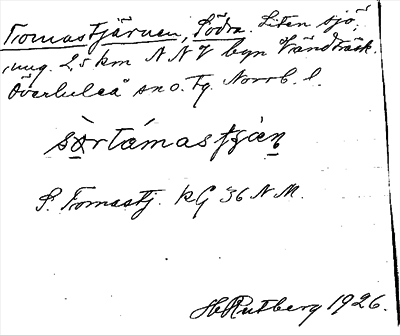 Tomastjärnen, Södra. Liten sjö,
ung. 25 km NNV byn Vändträsk.
Överluleå sn o. tg. Norrb. l.
sǫ̀rtámastjɛ̀ṇ
S. Tomastj. kG 36 N M.
H Rutberg 1926.